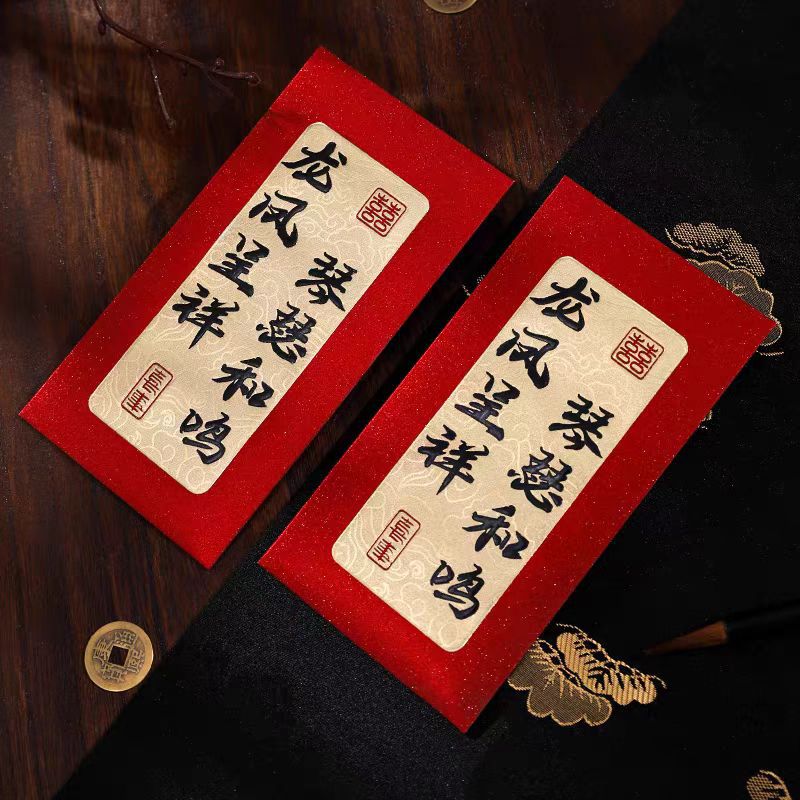 龙凤呈祥
琴瑟和鸣
囍
龙凤呈祥
琴瑟和鸣
囍